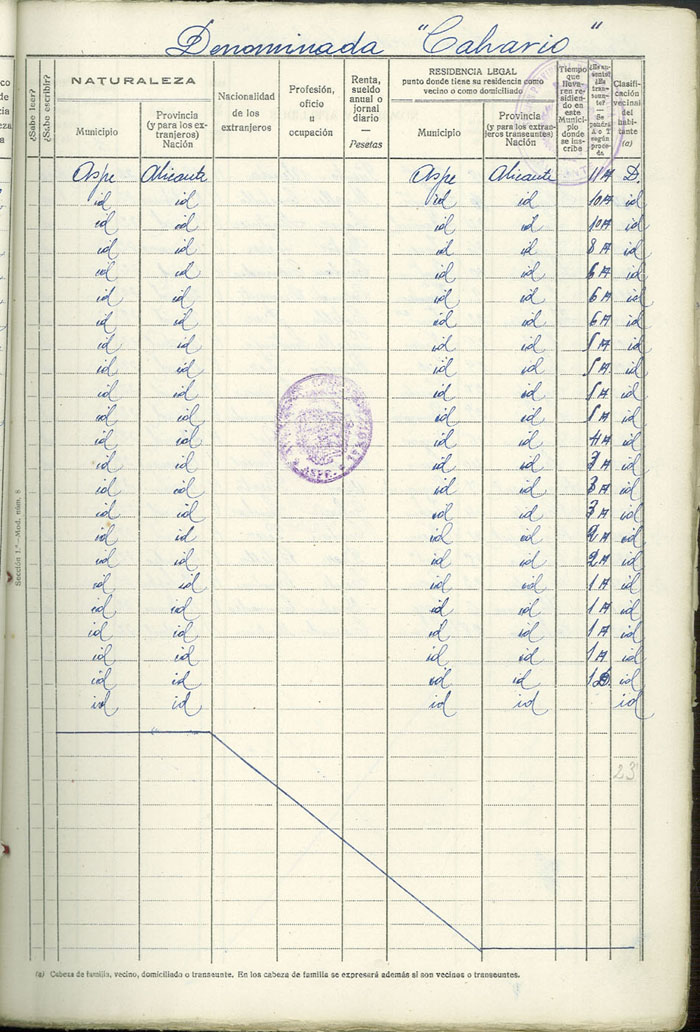 Denominada "Calvario"
¿Sabe leer?
¿Sabe escribir?
NATURALEZA
Municipio
Provincia (y para los extranjeros) Nación
Nacionalidad de los extranjeros
Profesión, oficio u ocupación
Renta, sueldo anual o jornal diario — Pesetas
RESIDENCIA LEGAL
punto donde tiene su residencia como vecino o como domiciliado
Municipio
Provincia (y para los extranjeros transeuntes) Nación
Tiempo que llevaren residiendo en este Municipio donde se inscribe
Clasificación vecinal del habitante (a)
Aspe Alicante Aspe Alicante 11 A D.
id id id id 10 A id
id id id id 10 A id
id id id id 8 A id
id id id id 6 A id
id id id id 6 A id
id id id id 6 A id
id id id id 5 A id
id id id id 5 A id
id id id id 5 A id
id id id id 5 A id
id id id id 4 A id
id id id id 3 A id
id id id id 3 A id
id id id id 3 A id
id id id id 2 A id
id id id id 2 A id
id id id id 1 A id
id id id id 1 A id
id id id id 1 A id
id id id id 1 A id
id id id id id
id id id id id
23
Sección 1.ª—Mod. núm. 8
ASPE
(a) Cabeza de familia, vecino, domiciliado o transeunte. En los cabeza de familia se expresará además si son vecinos o transeuntes.